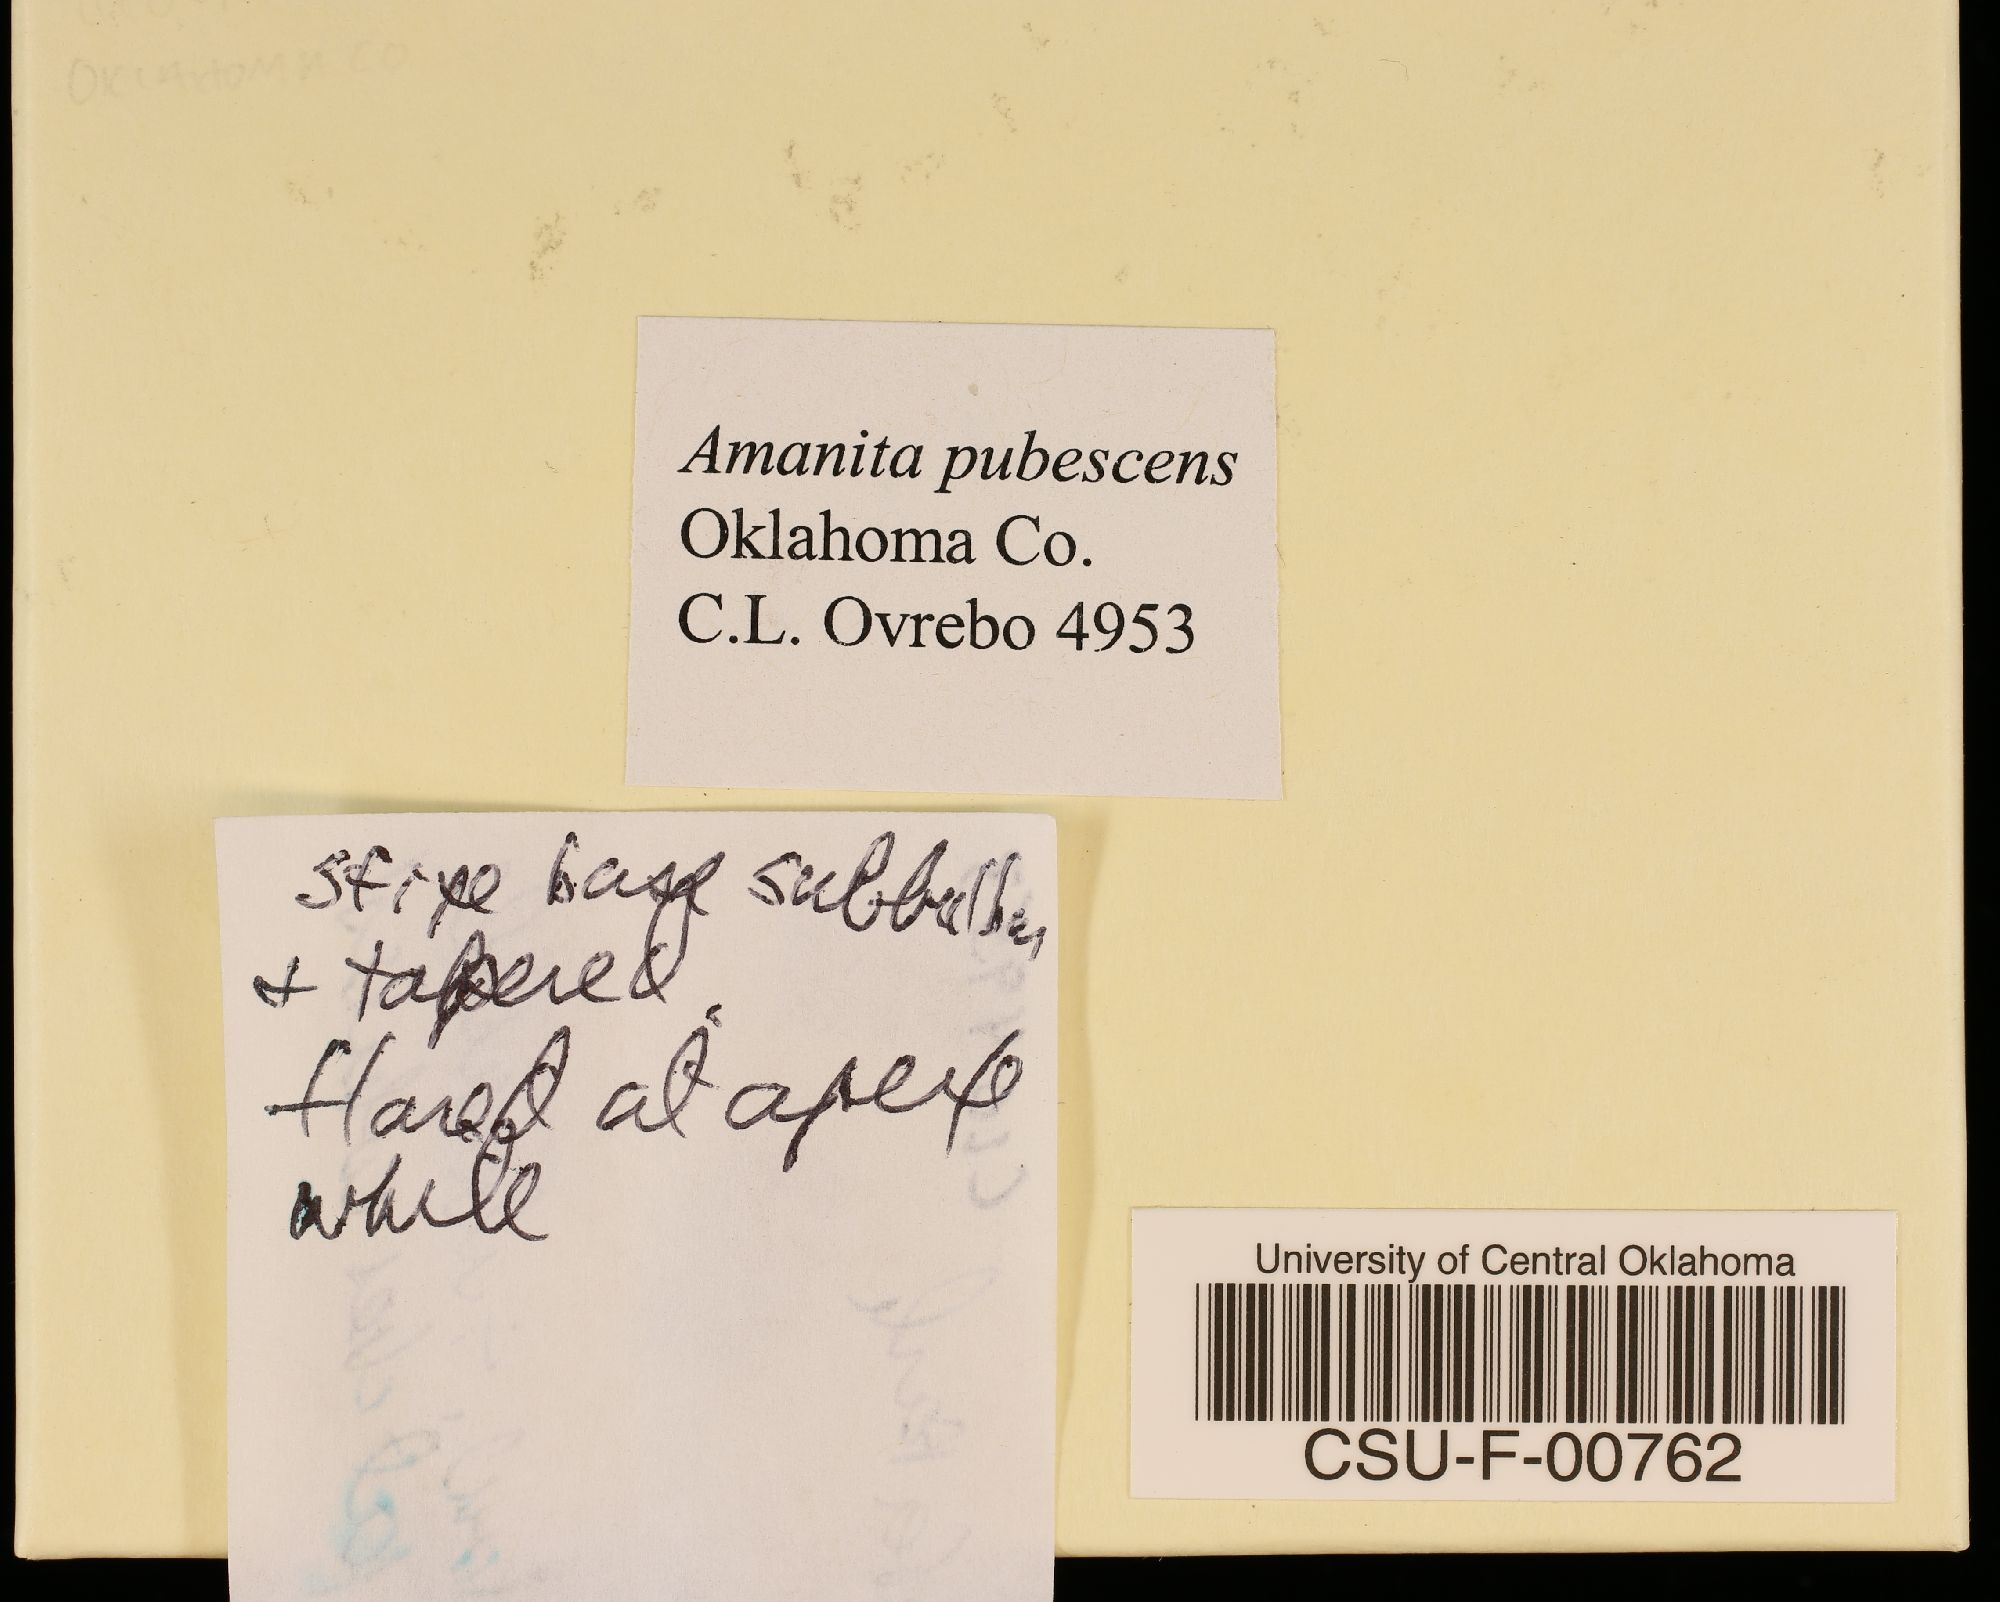 OKLAHOMA CO
Amanita pubescens
Oklahoma Co.
C.L. Ovrebo 4953
stipe base subbulbous
+ tapered.
flared at apex
white
University of Central Oklahoma
CSU-F-00762